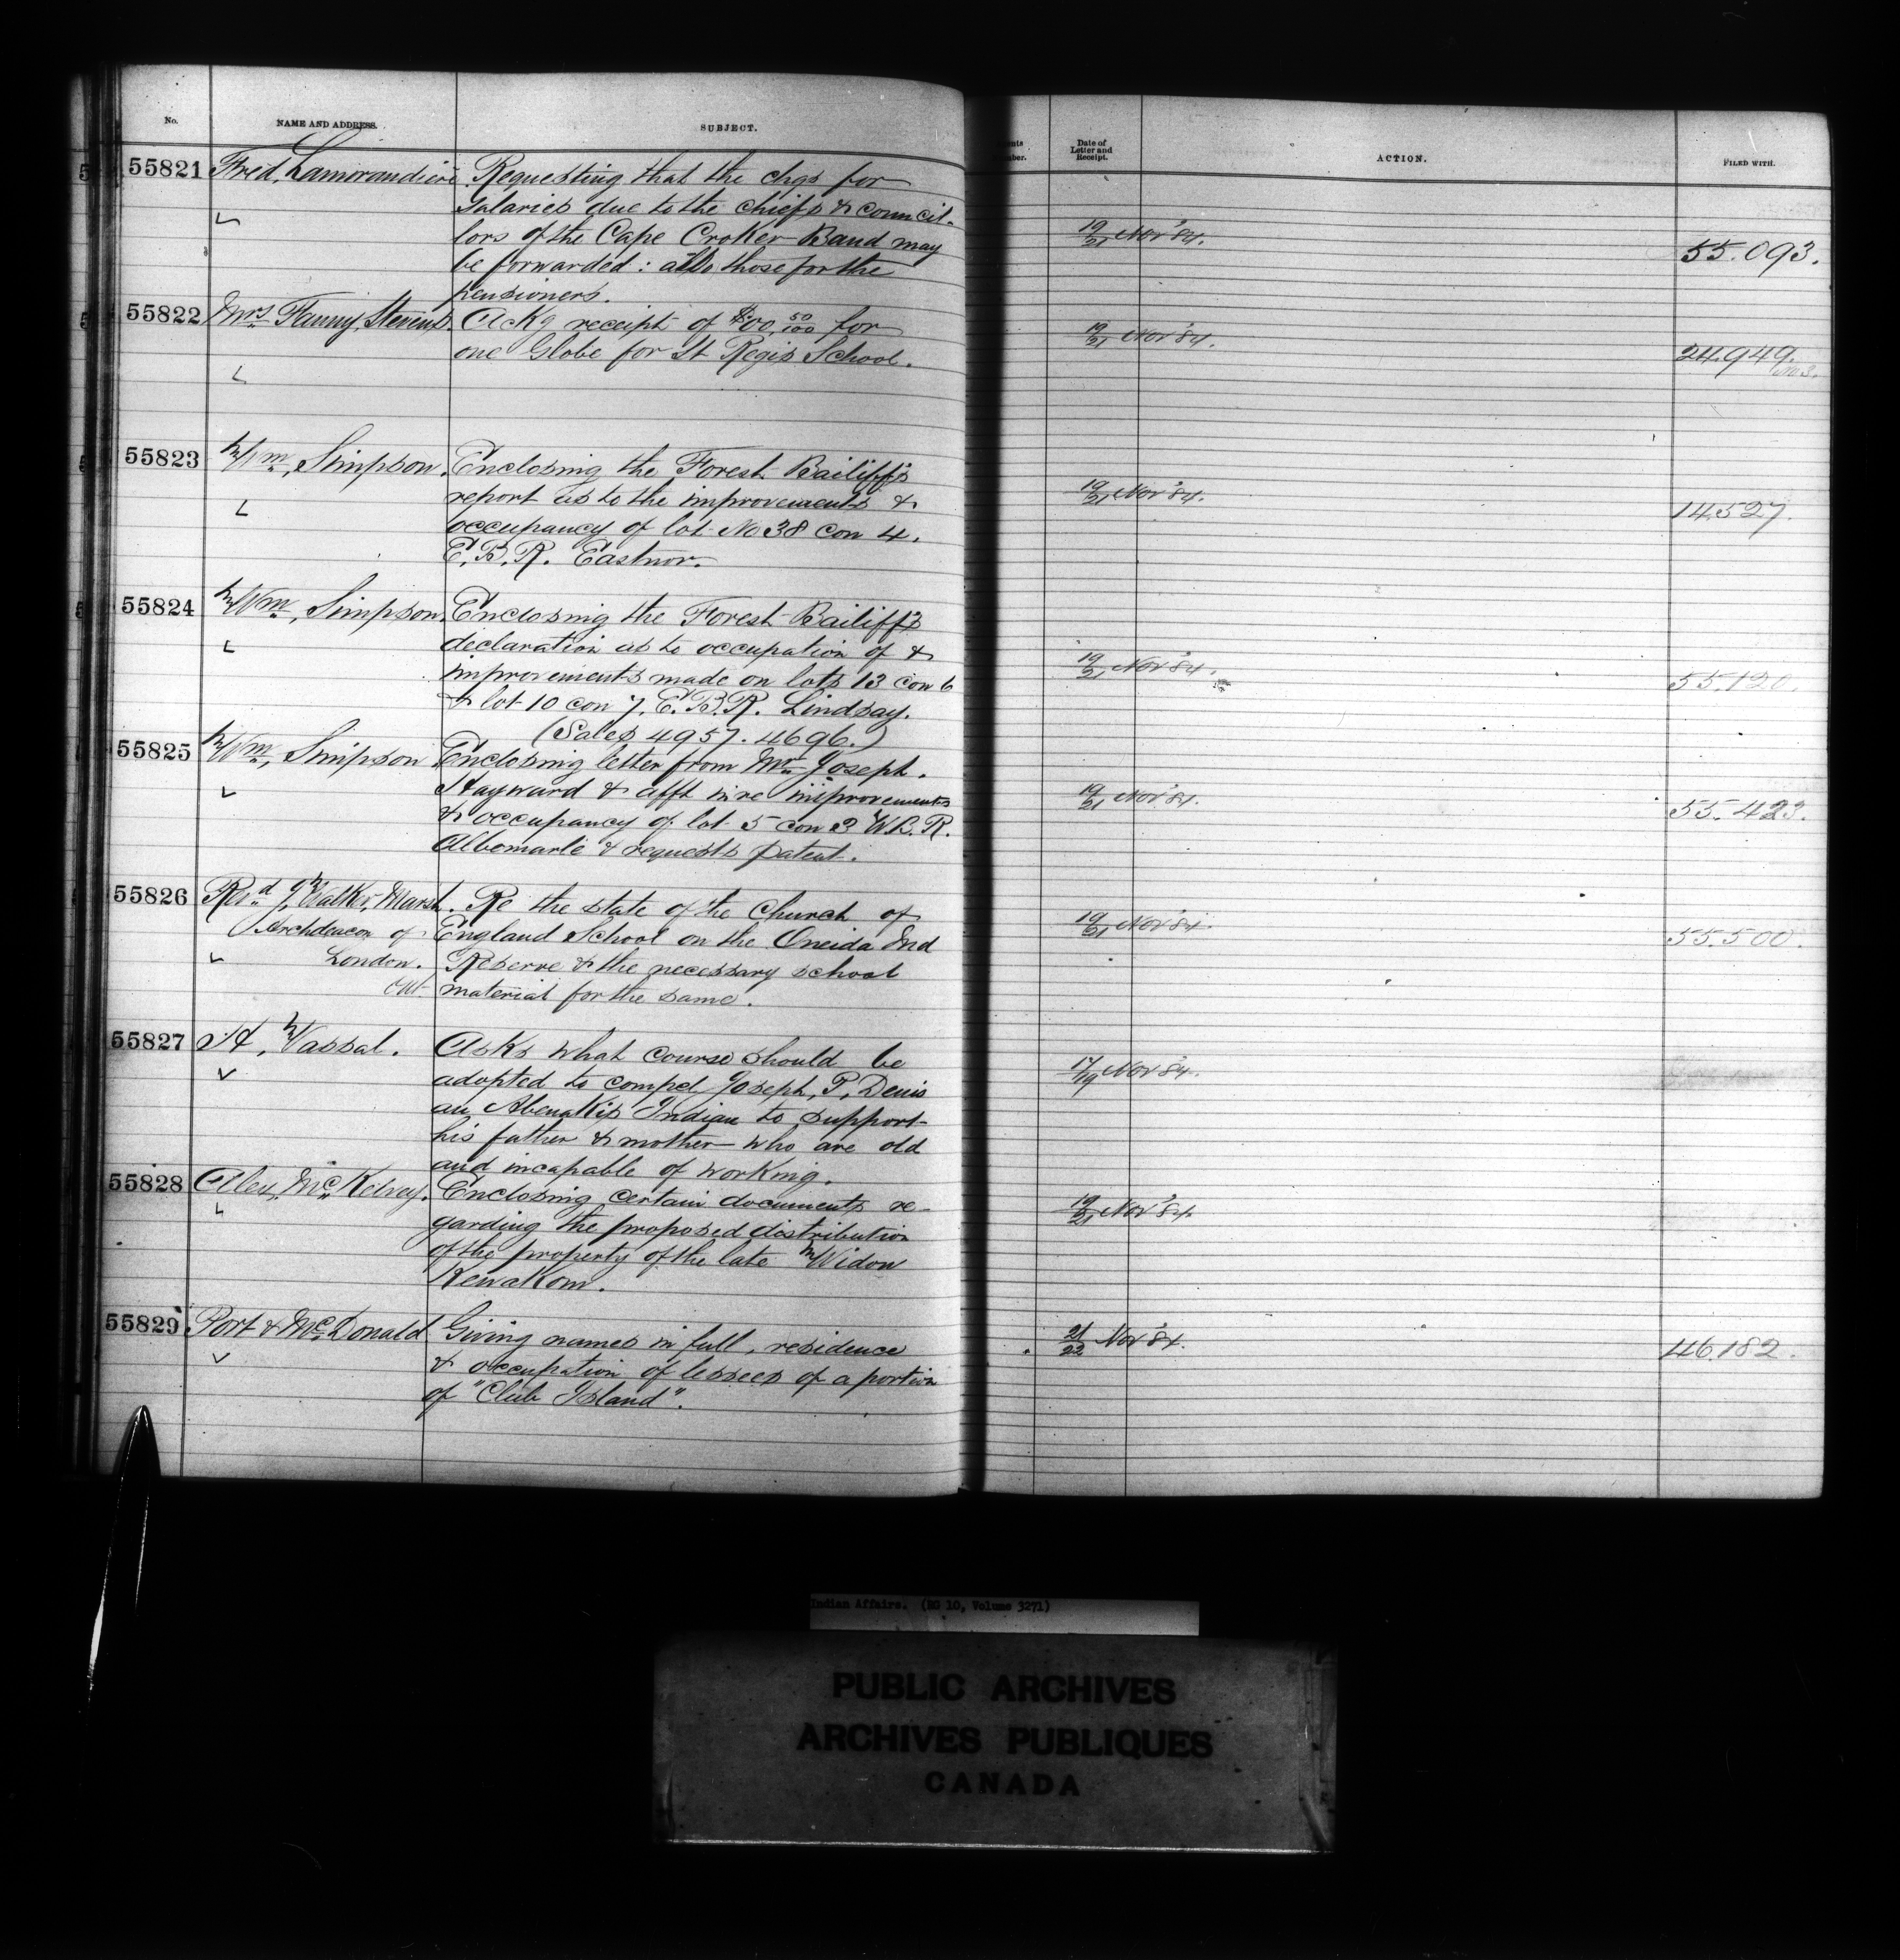 No. NAME AND ADDRESS. SUBJECT. Date of Letter and Receipt. ACTION. FILED WITH.
55821 Fred. Lamorandiere Requesting that the chqs for
salaries due to the chiefs & council-
lors of the Cape Croker Band may
be forwarded: also those for the
pensioners.
19/21 Nov '84. 55.093.
55822 Mrs Fanny Stevens. Ackg receipt of $00, 50/100 for
one Globe for St Regis School.
19/21 Nov '84. 24.949.
No 3.
55823 Wm, Simpson. Enclosing the Forest Bailiff's
report as to the improvements &
occupancy of lot No 38 con 4.
E.B.R. Eastnor.
19/21 Nov '84. 14527.
55824 Wm, Simpson. Enclosing the Forest Bailiff's
declaration as to occupation of &
improvements made on lots 13 con 6
& lot 10 con 7, E.B.R. Lindsay.
(Sales 4957. 4696.)
19/21 Nov '84. 55.120.
55825 Wm, Simpson Enclosing letter from Mr Joseph.
Hayward & afft in re improvements
& occupancy of lot 5 con 3 W.B.R.
Albemarle & requests patent.
19/21 Nov '84. 55.423.
55826 Revd J. Walker, Marsh. Re the state of the Church of
Archdeacon of England School on the Oneida Ind
London. Reserve & the necessary school
Ont material for the same.
19/21 Nov '84. 55.500.
55827 H, Vassal. Asks what course should be
adopted to compel Joseph, P, Denis
an Abenakis Indian to support
his father & mother who are old
and incapable of working.
17/19 Nov '84.
55828 Alex, McKelvey. Enclosing certain documents re-
garding the proposed distribution
of the property of the late Widow
Kewakom.
19/21 Nov '84.
55829 Port & McDonald Giving names in full, residence
& occupation of lessees of a portion
of "Club Island".
21/22 Nov '84. 46.182.
Indian Affairs. (RG 10, Volume 3271)
PUBLIC ARCHIVES
ARCHIVES PUBLIQUES
CANADA